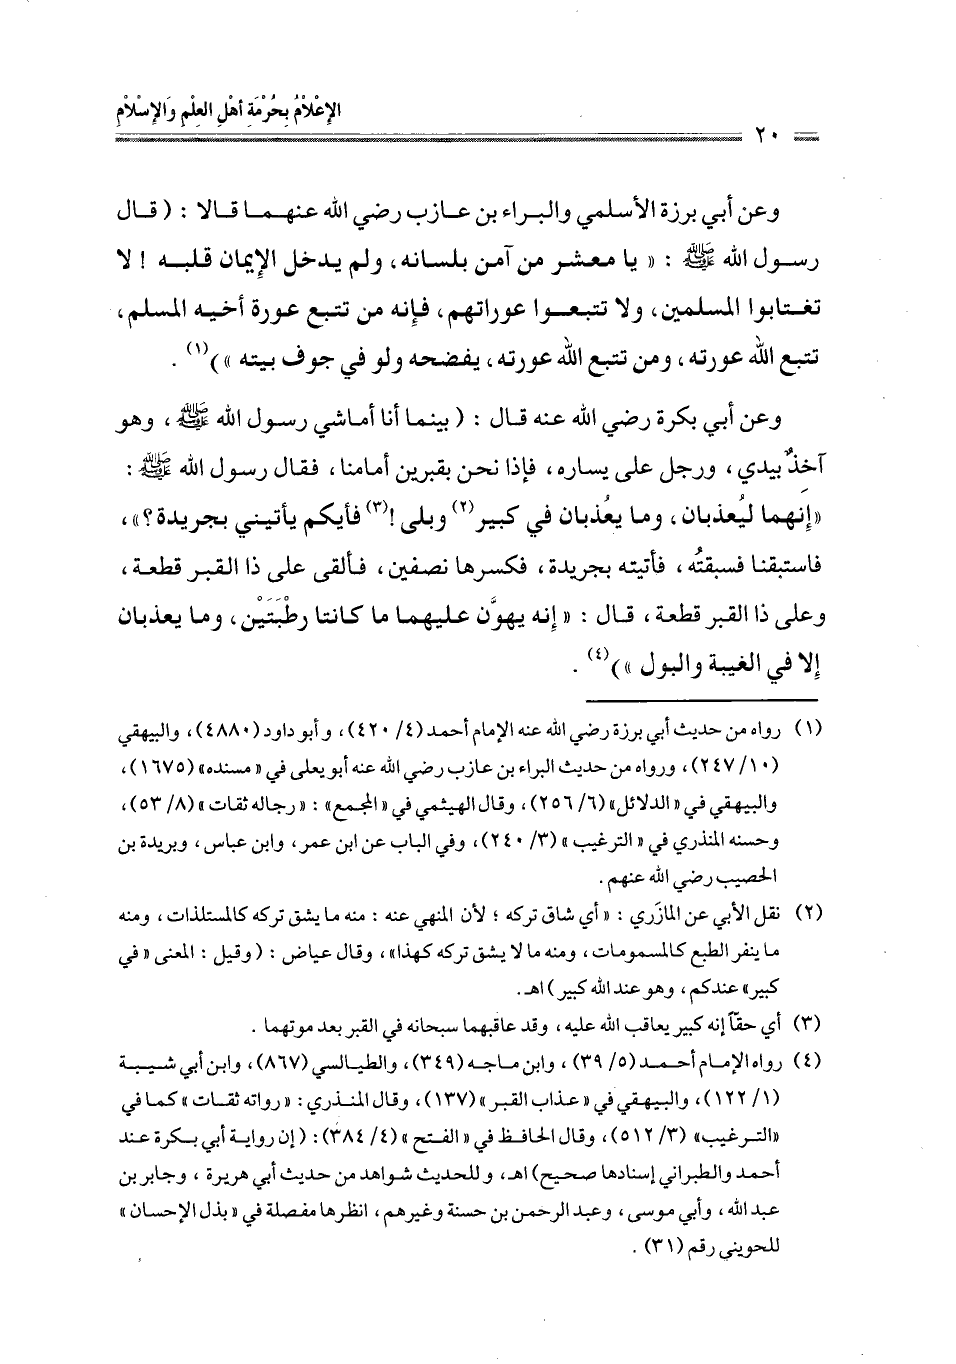 الإعْلَامُ بِحُرْمَةِ أهْلِ العِلْمِ وَالإسْلَامِ
٢٠
وعن أبي برزة الأسلمي والبراء بن عازب رضي الله عنهما قالا : ( قال
رسول الله ﷺ : « يا معشر من آمن بلسانه ، ولم يدخل الإيمان قلبه ! لا
تغتابوا المسلمين ، ولا تتبعوا عوراتهم ، فإنه من تتبع عورة أخيه المسلم ،
تتبع اللهُ عورته ، ومن تتبع اللهُ عورته ، يفضحه ولو في جوف بيته » )(١) .
وعن أبي بكرة رضي الله عنه قال : ( بينما أنا أماشي رسول الله ﷺ ، وهو
آخذٌ بيدي ، ورجل على يساره ، فإذا نحن بقبرين أمامنا ، فقال رسول الله ﷺ :
«إنهما ليُعذبان ، وما يعُذبان في كبير(٢) وبلى !(٣) فأيكم يأتيني بجريدة ؟» ،
فاستبقنا فسبقتُه ، فأتيته بجريدة ، فكسرها نصفين ، فألقى على ذا القبر قطعة ،
وعلى ذا القبر قطعة ، قال : « إنه يهوَّن عليهما ما كانتا رطْبَتَيْن ، وما يعذبان
إلا في الغيبة والبول » )(٤) .
(١) رواه من حديث أبي برزة رضي الله عنه الإمام أحمد (٤/ ٤٢٠) ، وأبو داود (٤٨٨٠) ، والبيهقي
(١٠/ ٢٤٧) ، ورواه من حديث البراء بن عازب رضي الله عنه أبو يعلى في « مسنده» (١٦٧٥) ،
والبيهقي في « الدلائل» (٦/ ٢٥٦) ، وقال الهيثمي في «المجمع» : « رجاله ثقات » (٨/ ٥٣) ،
وحسنه المنذري في « الترغيب » (٣/ ٢٤٠) ، وفي الباب عن ابن عمر ، وابن عباس ، وبريدة بن
الحصيب رضي الله عنهم .
(٢) نقل الأبي عن المازَري : « أي شاق تركه ؛ لأن المنهي عنه : منه ما يشق تركه كالمستلذات ، ومنه
ما ينفر الطبع كالمسمومات ، ومنه ما لا يشق تركه كهذا» ، وقال عياض : ( وقيل : المعنى « في
كبير» عندكم ، وهو عند الله كبير ) اهـ.
(٣) أي حقّاً إنه كبير يعاقب الله عليه ، وقد عاقبهما سبحانه في القبر بعد موتهما .
(٤) رواه الإمام أحمد (٥/ ٣٩) ، وابن ماجه (٣٤٩) ، والطيالسي (٨٦٧) ، وابن أبي شيبة
(١/ ١٢٢) ، والبيهقي في « عذاب القبر » (١٣٧) ، وقال المنذري : « رواته ثقات » كما في
«الترغيب» (٣/ ٥١٢) ، وقال الحافظ في « الفتح » (٤/ ٣٨٤) : ( إن رواية أبي بكرة عند
أحمد والطبراني إسنادها صحيح) اهـ ، وللحديث شواهد من حديث أبي هريرة ، وجابر بن
عبد الله ، وأبي موسى ، وعبد الرحمن بن حسنة وغيرهم ، انظرها مفصلة في « بذل الإحسان »
للحويني رقم (٣١) .